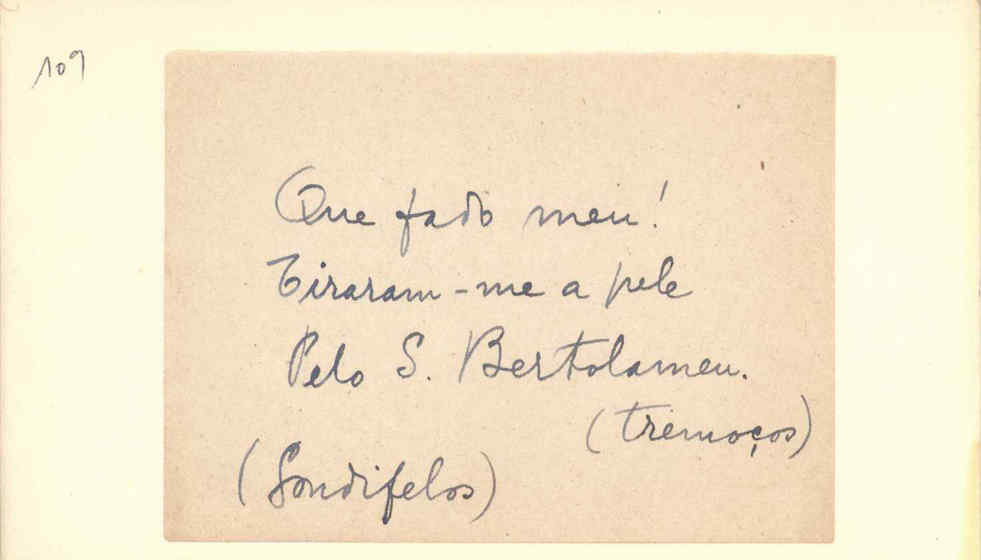 109
Que fado meu!
Tiraram-me a pele
Pelo S. Bertolameu.
(tremoços)
(Gondifelos)